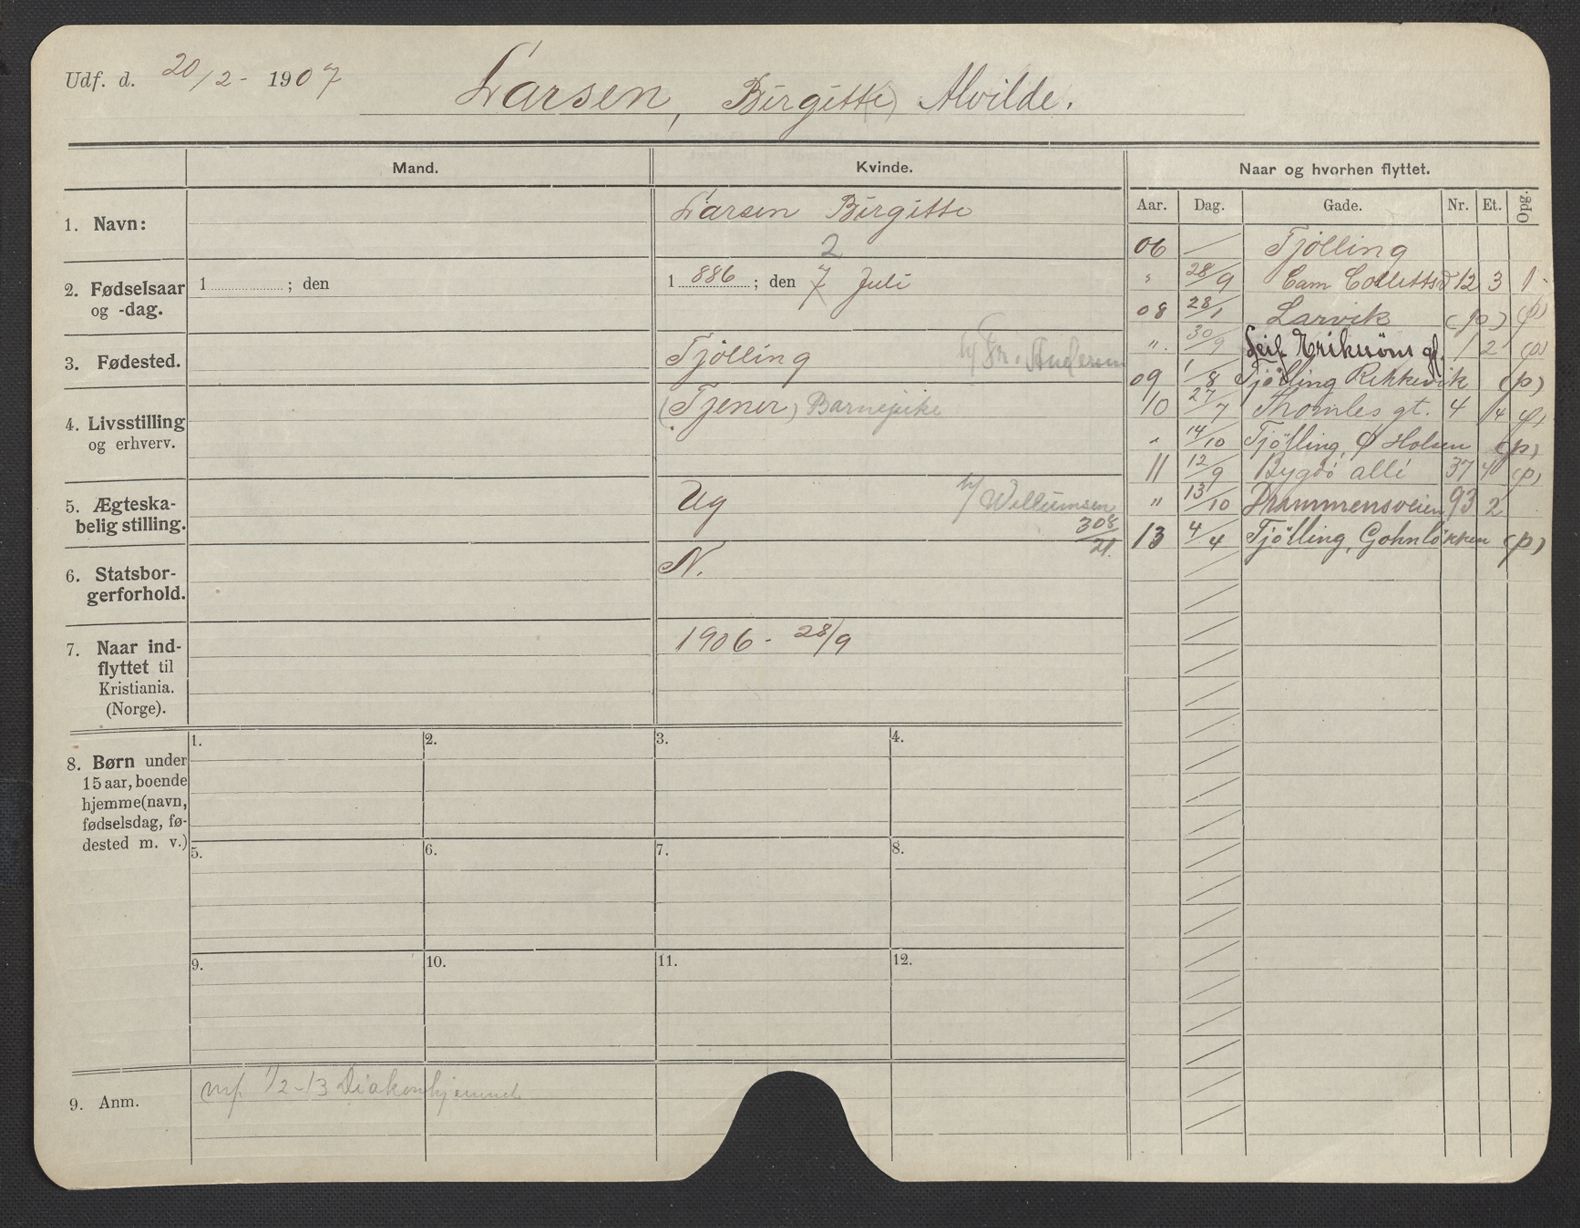 Udf. d. 20/2 - 1907
Larsen, Birgitte) Alvilde.
Mand.
Kvinde.
Naar og hvorhen flyttet.
Aar. Dag. Gade. Nr. Et. Opg.
1. Navn:
Larsen Birgitte
2. Fødselsaar
og -dag.
1 ; den
1 886 ; den 7 Juli
2
3. Fødested.
Tjölling
h/ Fr. Andersen
4. Livsstilling
og erhverv.
(Tjener) Barnepike
5. Ægteska-
belig stilling.
Ug
h/ Willumsen
308
21.
6. Statsbor-
gerforhold.
N.
7. Naar ind-
flyttet til
Kristiania.
(Norge).
1906 - 28/9
06 Tjölling
" 28/9 Cam Colletts 12 3 1
08 28/1 Larvik (p) (p)
". 30/9 Leif Eriksöns gt. 1 2 (p)
09 1/8 Tjölling Rekkevik (p)
10 27/7 Thomles gt. 4 (p)
" 14/10 Tjölling, Ø Holsen (p)
11 12/9 Bygdö allé 37 (p)
" 13/10 Drammensveien 93 2
13 4/4 Tjölling, Gohnlökken (p)
8. Børn under
15 aar, boende
hjemme (navn,
fødselsdag, fø-
dested m. v.)
1. 2. 3. 4.
5. 6. 7. 8.
9. 10. 11. 12.
9. Anm.
mf. 1/2-13 Diakonhjemmet